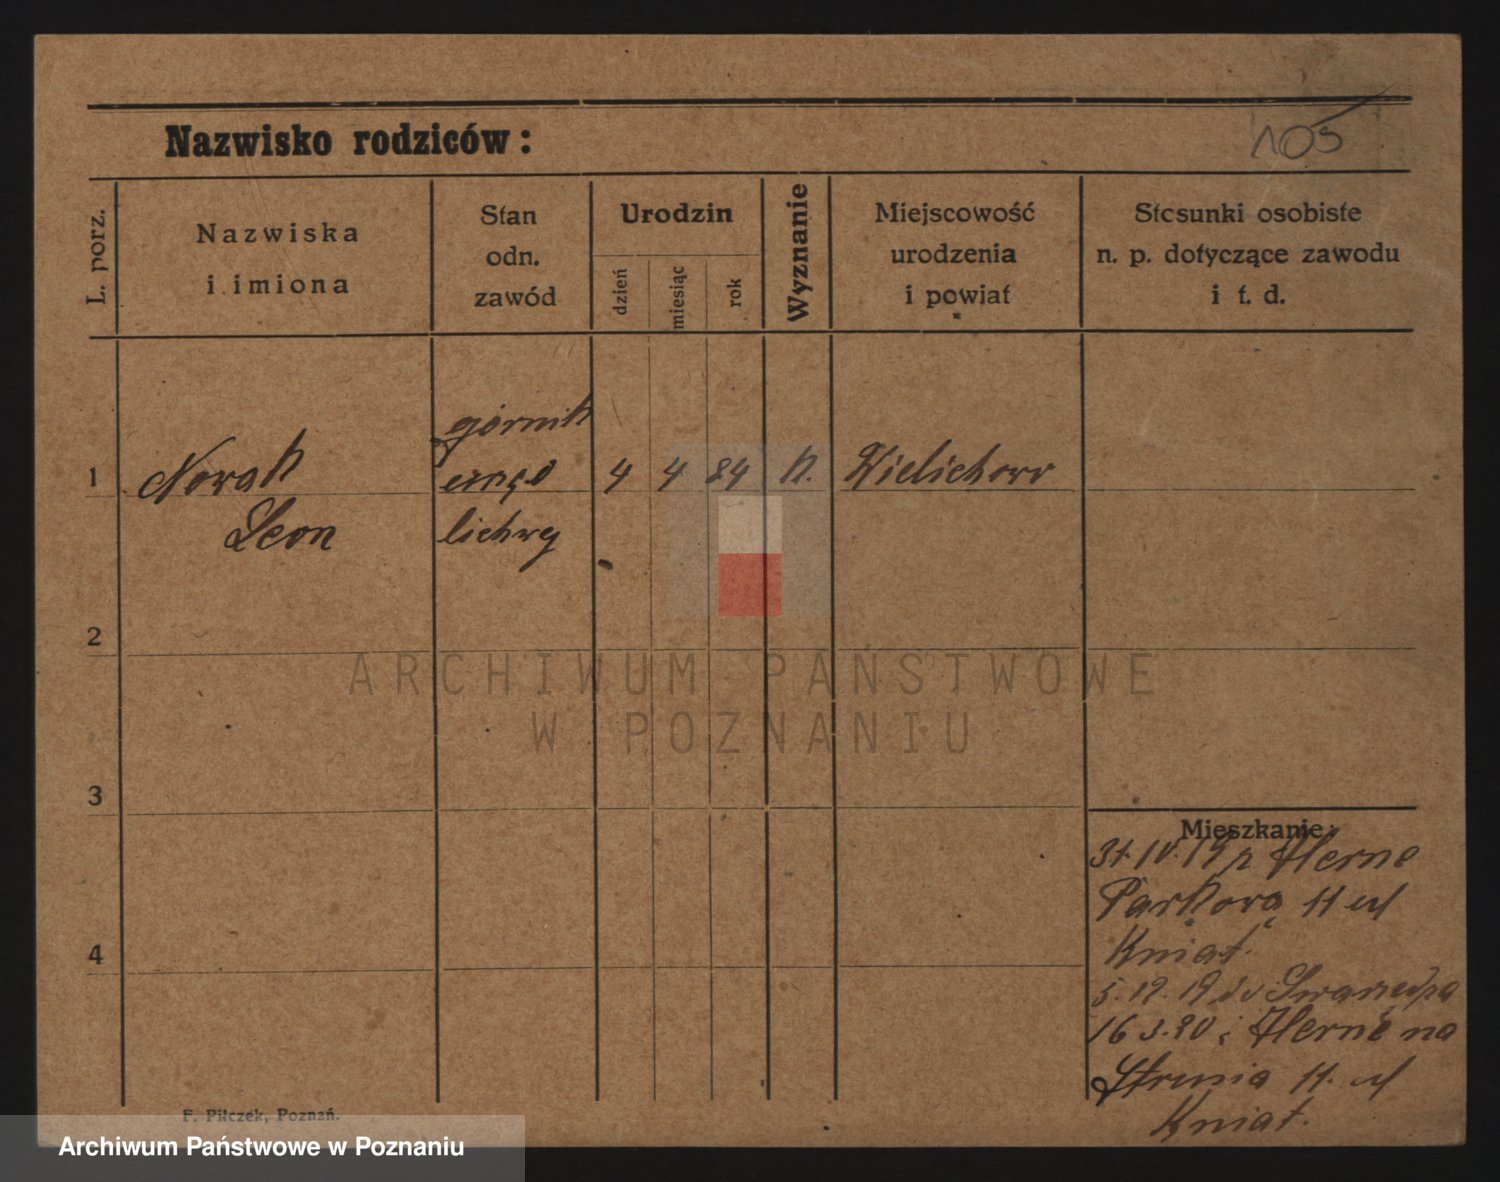 Nazwisko rodziców:
105
L. porz.
Nazwiska
i imiona
Stan
odn.
zawód
Urodzin
dzień
miesiąc
rok
Wyznanie
Miejscowość
urodzenia
i powiat
Stosunki osobiste
n. p. dotyczące zawodu
i t. d.
górnik
1 Nowak 4 4 84 k. Wielichowo
Leon
2
ARCHIWUM PAŃSTWOWE
W POZNANIU
3
Mieszkanie:
Herne
11
4
Kniat.
5.12.19 do Swarzędza
16 3.20 Herne na
11.
Kniat.
F. Pilczek, Poznań.
Archiwum Państwowe w Poznaniu